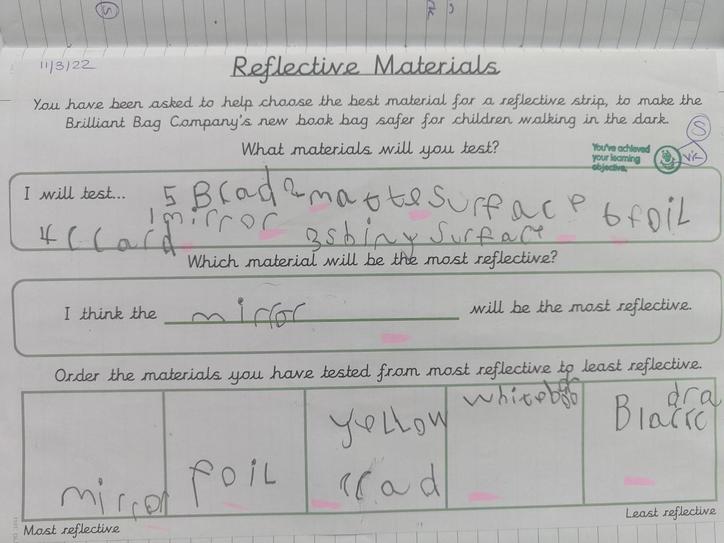 11/3/22
Reflective Materials
You have been asked to help choose the best material for a reflective strip, to make the
Brilliant Bag Company's new book bag safer for children walking in the dark.
What materials will you test?
You've achieved
your learning
objective.
S
I will test... 5 Brad 2 matte surface 6 foil
1 mirror
4 ccard 3 shiny surface
Which material will be the most reflective?
I think the mirror will be the most reflective.
Order the materials you have tested from most reflective to least reflective.
mirror
foil
yellow
crad
Most reflective
Least reflective